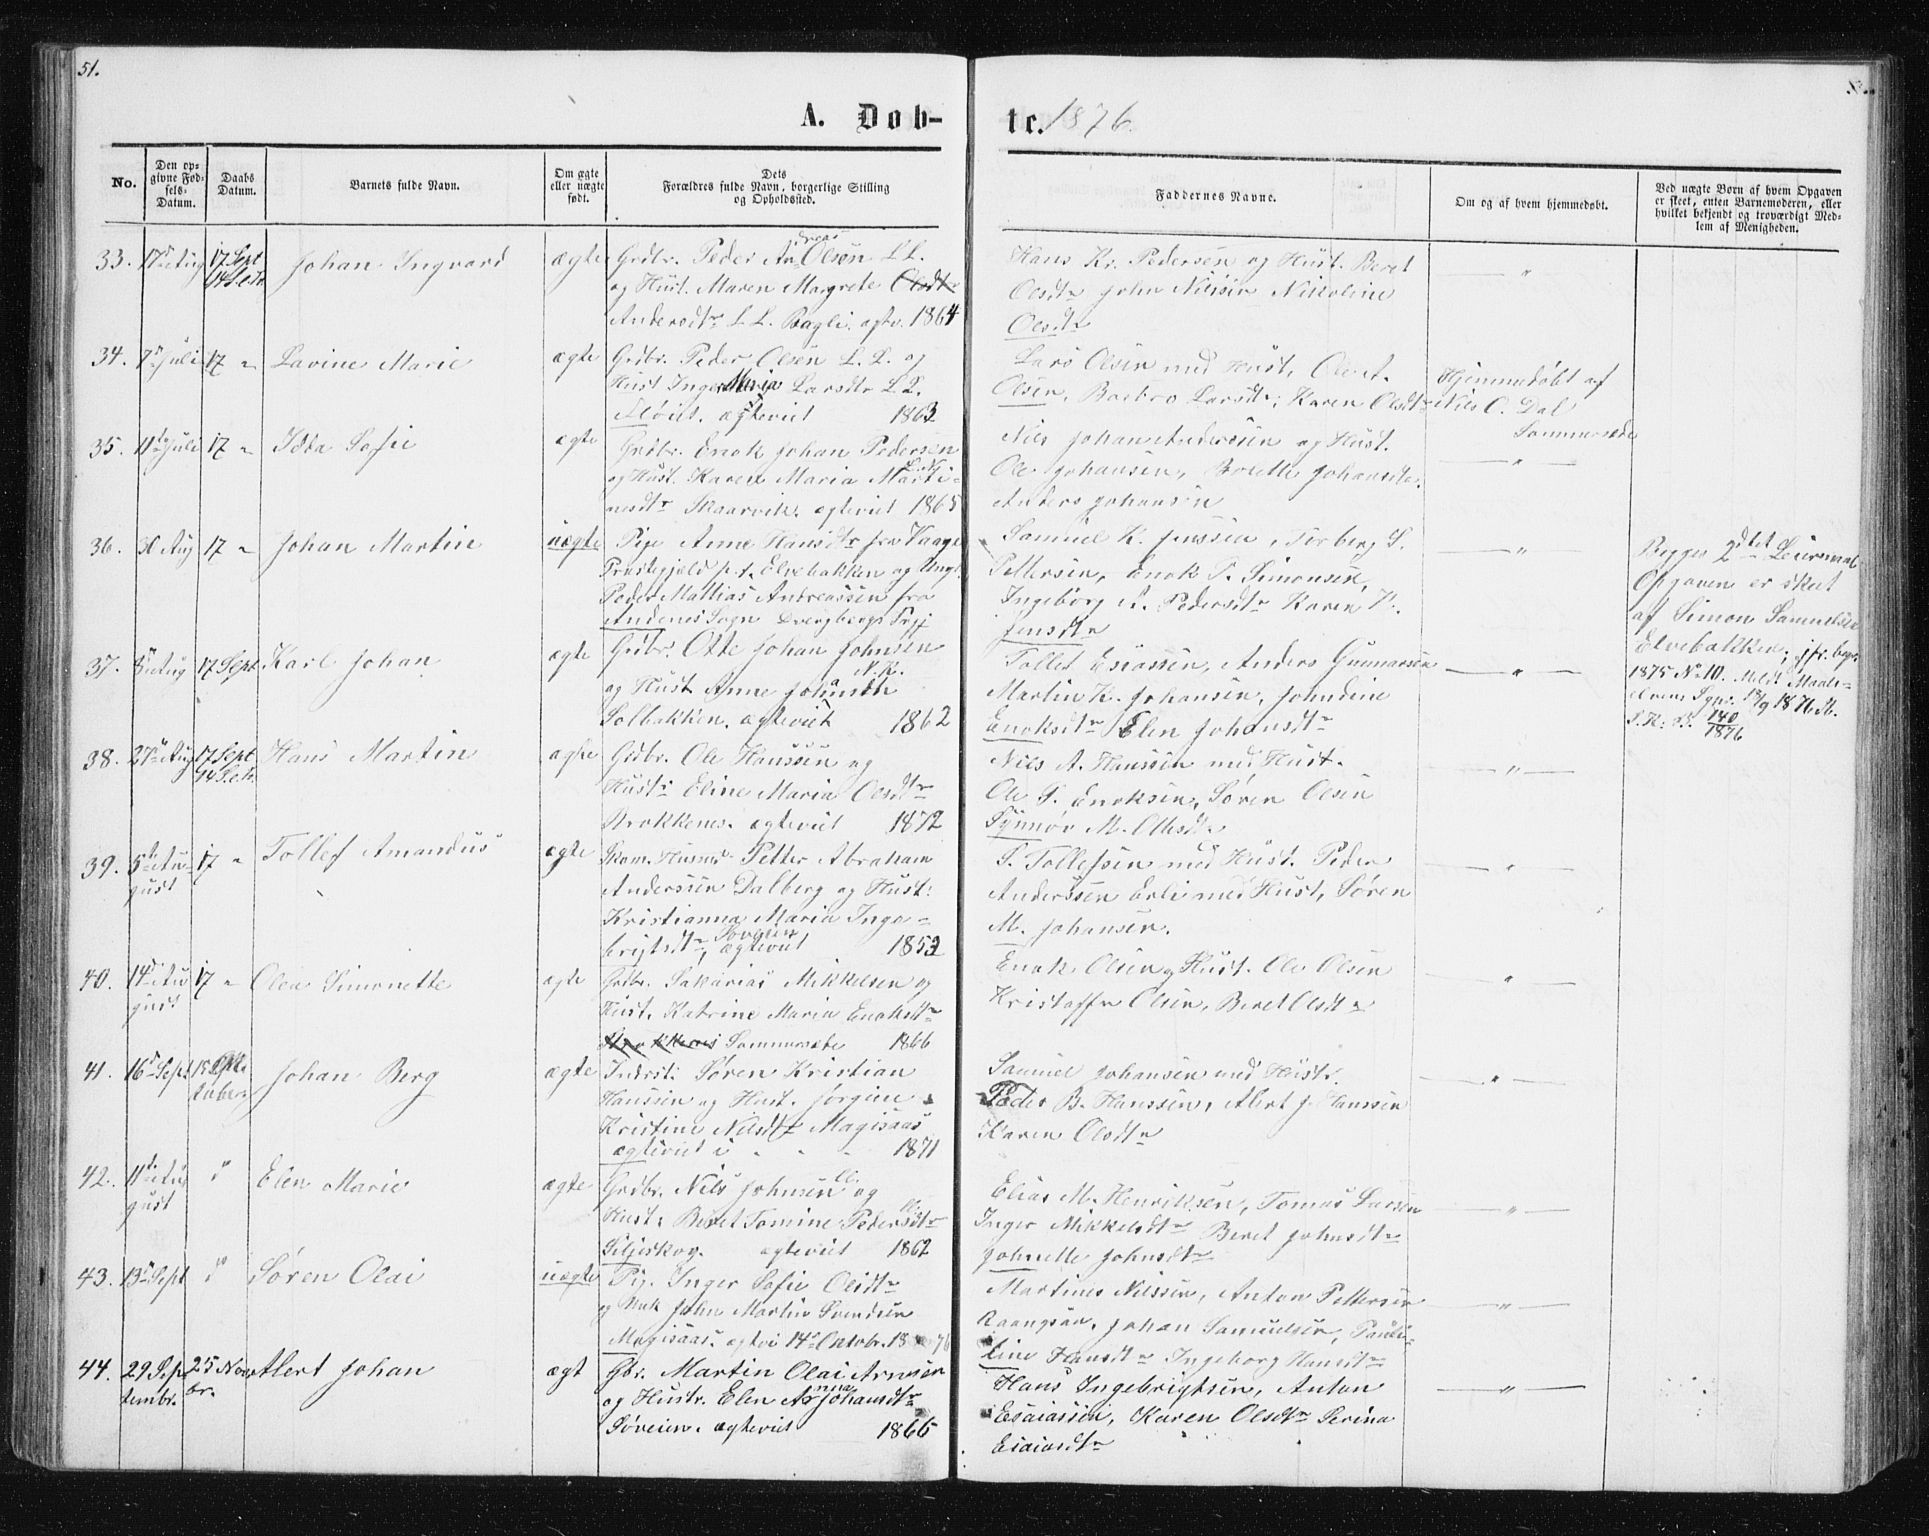 51.
A. Døb-
te. 1876.
No.
Den op-
givne Fød-
sels-
Datum.
Daabs
Datum.
Barnets fulde Navn.
Om ægte
eller uægte
født.
Dets
Forældres fulde Navn, borgerlige Stilling
og Opholdssted.
Faddernes Navne.
Om og af hvem hjemmedøbt.
Ved uægte Børn af hvem Opgaven
er skeet, enten Barnemoderen, eller
hvilket bekjendt og troværdigt Med-
lem af Menigheden.
33. 17 Aug 17 Sept Johan Ingvard ægte Grdbr. Peder Andreas Olsen L.L.
og Hust. Maren Margrete Olsdtr
Andersdtr L.L. Bagli. ægtv. 1864
Hans Kr. Pedersen og Hust. Beret
Olsdtr John Nilsen Nikoline
Olsdtr
34. 7 Juli 17 " Lavine Marie ægte Grdbr. Peder Olsen L.L. og
Hust Inger Maria Larsdtr L.L.
ægteviet 1863
Lars Olsen med Hust, Ole A.
Olsen, Barbro Larsdtr, Karen Olsdtr
Hjemmedøbt af
Nils O. Dal
Sommersæde
35. 11 Juli 17 " Idda Sofie ægte Grdbr. Enok Johan Pedersen
og Hust. Karen Maria Marti-
nesdtr Skaarvik. ægteviet 1865
Nils Johan Anderssen og Hust.
Ole Johansen, Bolette Johansdtr.
Anders Johansen
36. 30 Aug 17 " Johan Martin uægte Pige Anne Hansdtr fra Vaage
Præstegjeld p.t. Elvebakken og Ungk.
Peder Mattias Andreassen fra
Andenes Sogn Dverbergs Prgj
Samuel K. Jenssen, Torberg S.
Pettersen, Enok P. Simonsen,
Ingeborg A. Pedersdtr Karen K.
Jensdtr
Begges 2det Leiermaal
Opgaven er skeet
af Simon Samuelsen
Elvebakken; jfr. begr.
1875 No 10. Meldt Maals-
elvens Sgpr. 18/9 1876
140
1876
37. 5 Aug 17 Sept Karl Johan ægte Grdbr. Otte Johan Johnsen
N.K.
og Hust Anne Johansdtr
Solbakken. ægteviet 1862
Tollef Esiassen, Anders Gunnarsen
Martin K. Johansen, Johndine
Enoksdtr Elen Johansdtr
38. 27 Aug 17 Sept Hans Martin ægte Grdbr. Ole Hanssen og
Hustr Eline Maria Olsdtr
Brokkenes. ægteviet 1872
Nils A. Hanssen med Hust.
Ole P. Enoksen, Søren Olsen
Synnøv M. Ottesdtr
39. 5 Au-
gust 17 " Tollef Amandus ægte Skom. Husmd Petter Abraham
Anderssen Dalberg og Hust:
Kristianna Maria Inge-
brigtsdtr, Søreien ægteviet 1853
S. Tollefsen med Hust. Peder
Anderssen Erli med Hust, Søren
M. Johansen.
40. 14 Au
gust 17 " Olea Simonette ægte Grdbr. Sakarias Mikkelsen og
Hust. Katrine Maria Enoksdtr
Brokkenes Sommersæde 1866
Enok Olsen og Hust. Ole Olsen
Kristoffer Olsen, Beret Olsdtr
41. 16 Sept. 15 Ok-
tober Johan Berg ægte Inderst: Søren Kristian
Hanssen og Hust. Jørgine
Kristine Nilsdtr Magisaas
ægteviet i " " " 1871
Samuel Johansen med Hustr.
Peder B. Hanssen, Albert J. Hanssen
Karen Olsdtr
42. 11 Au
gust do Elen Marie ægte Grdbr. Nils Johnsen og
Hust. Beret Tomine Pedersdtr
Siljeskog. ægteviet 1862
Elias M. Henriksen, Tomas Larsen
Inger Mikkelsdtr Beret Johnsdtr
Johnette Johnsdtr
43. 13 Sept do Søren Olai uægte Pij. Inger Sofie Olsdtr
og Unk John Martin Svendsen
Magisaas. ægtvi 14 Oktobr. 1876
Martines Nilssen, Anton Pettersen
Johan Samuelsen, Pauli-
line Hansdtr Ingeborg Hansdtr
44. 29 Sep
tembr. 25 Nov
br. Albert Johan ægt Gbr. Martin Olai Arnsen
og Hustr. Elen Anna Johansdtr
Søreien. ægteviet 1866
Hans Ingebrigtsen, Anton
Esaiassen, Karen Olsdtr Serina
Esaiasdtr